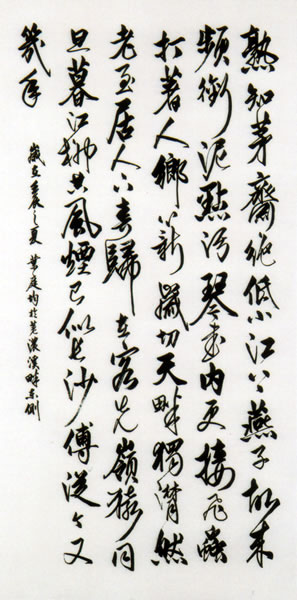 熟知茅齋絕低小江上燕子故來
頻銜泥點污琴書內更接飛蟲
打著人鄉心新歲切天畔獨潸然
老至居人下春歸在客先嶺猿同
旦暮江柳共風煙已似長沙傅從今又
幾年
歲在壬辰之夏 庭均於荖濃溪畔東側